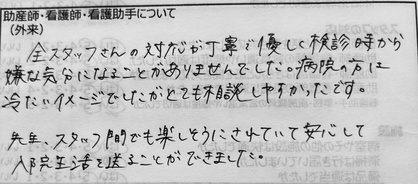 助産師・看護師・看護助手について
(外来)
全スタッフさんの対応が丁寧で優しく検診時から
嫌な気分になることがありませんでした。病院の方は
冷たいイメージでしたがとても相談しやすかったです。
先生、スタッフ間でも楽しそうにされていて安心して
入院生活を送ることができました。